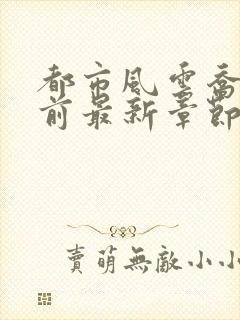 都市風雲喬
前最新章節
賣萌無敵小小